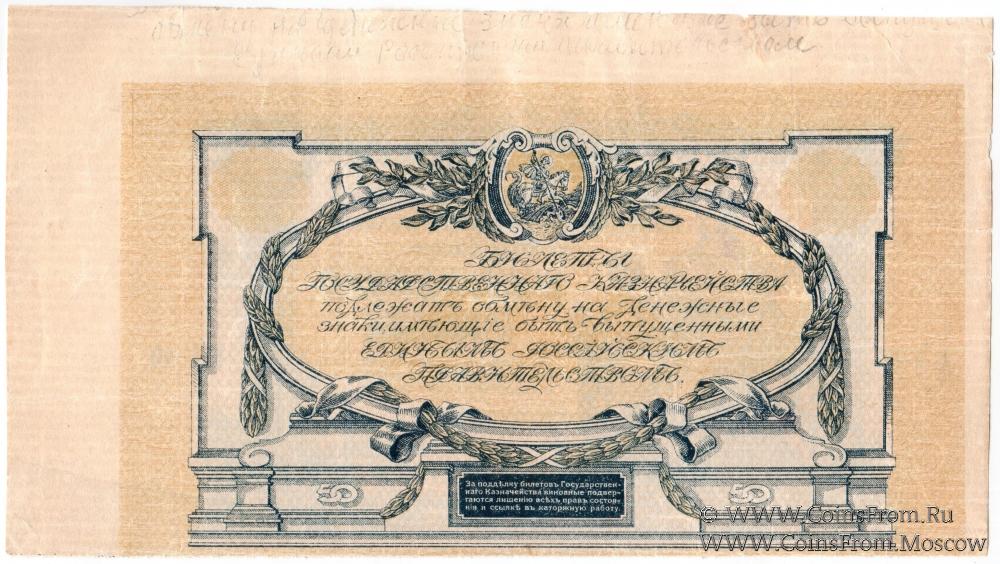 обмену на денежные знаки имеющие быть выпущен
Единым Российским Правительством
БИЛЕТЫ
ГОСУДАРСТВЕННАГО КАЗНАЧЕЙСТВА
подлежатъ обмѣну на Денежные
знаки, имѣющіе быть выпущенными
ЕДИНЫМЪ РОССІЙСКИМЪ
ПРАВИТЕЛЬСТВОМЪ.
За поддѣлку билетовъ Государствен-
наго Казначейства виновные подвер-
гаются лишенію всѣхъ правъ состоя-
нія и ссылкѣ въ каторжную работу.
50
50
© WWW.CoinsFrom.Ru
WWW.CoinsFrom.Moscow